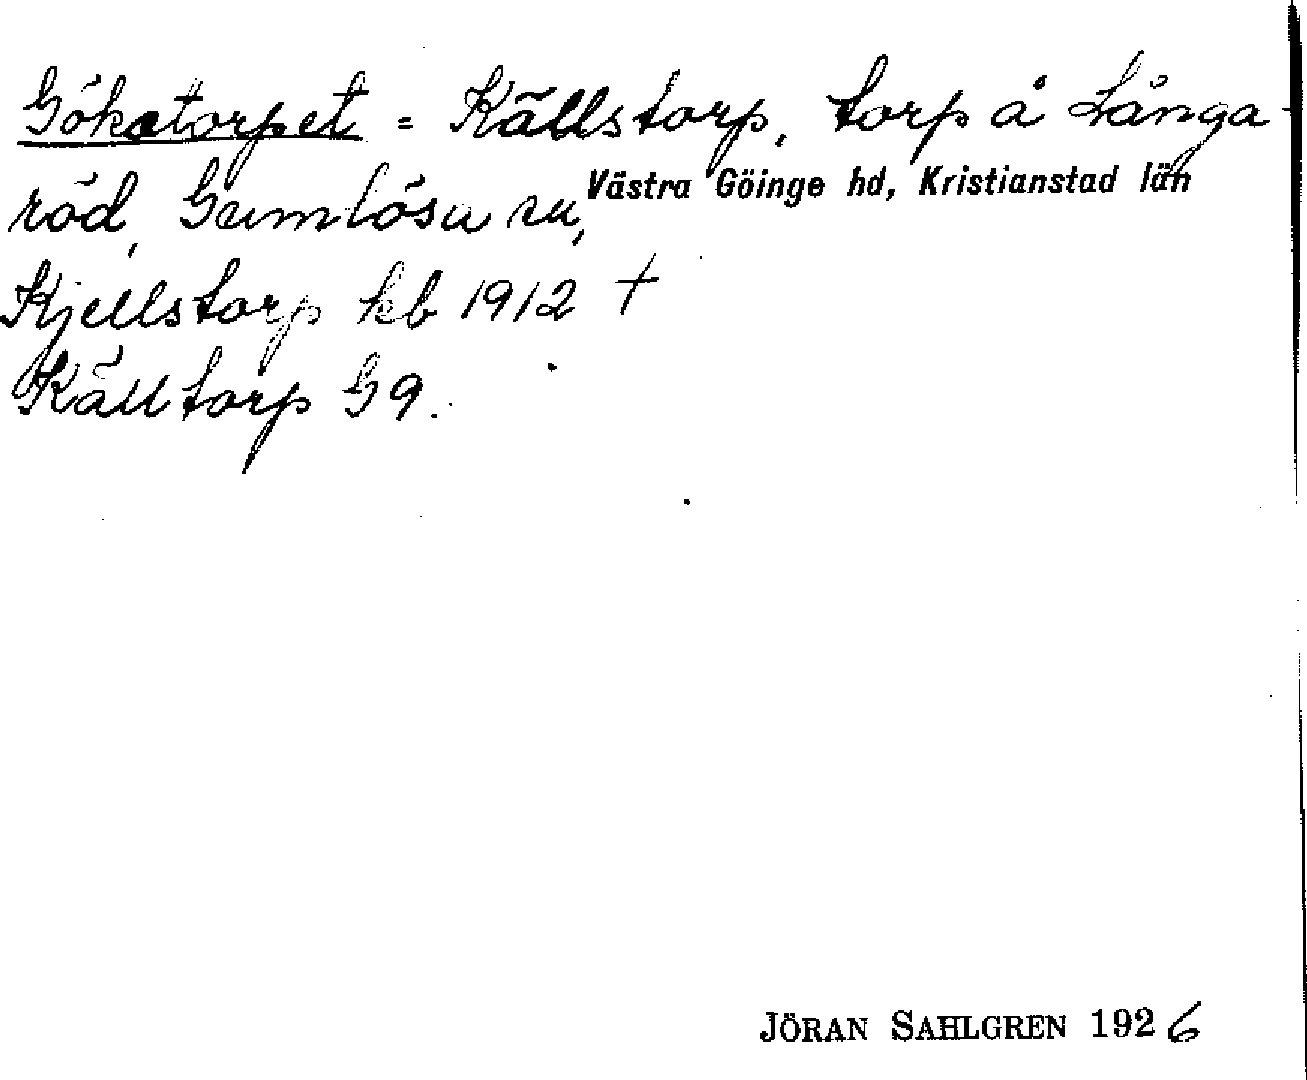 Göketorpet = Källstorp, torp å Långa-
röd, Gumlösa sn,
Västra Göinge hd, Kristianstad län
Kjellstorp kb 1912 †
Källtorp G9.
JÖRAN SAHLGREN 1926